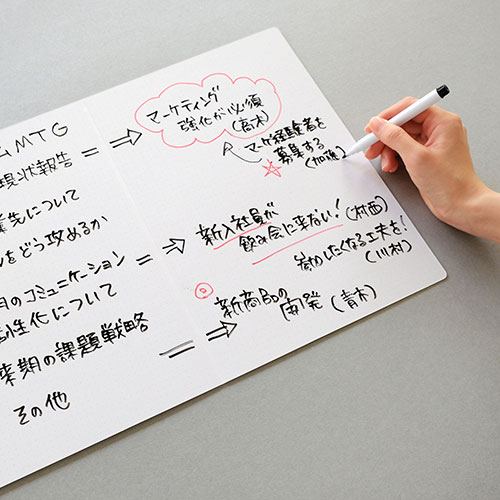 MTG
現状報告
先について
をどう攻めるか
のコミュニケーション
性化について
来期の課題戦略
その他
マーケティング
強化が必須
(高木)
マーケ経験者を
募集する
(加藤)
新入社員が
飲み会に来ない! (村西)
参加したくなる工夫を!
(川村)
新商品の
開発 (青木)